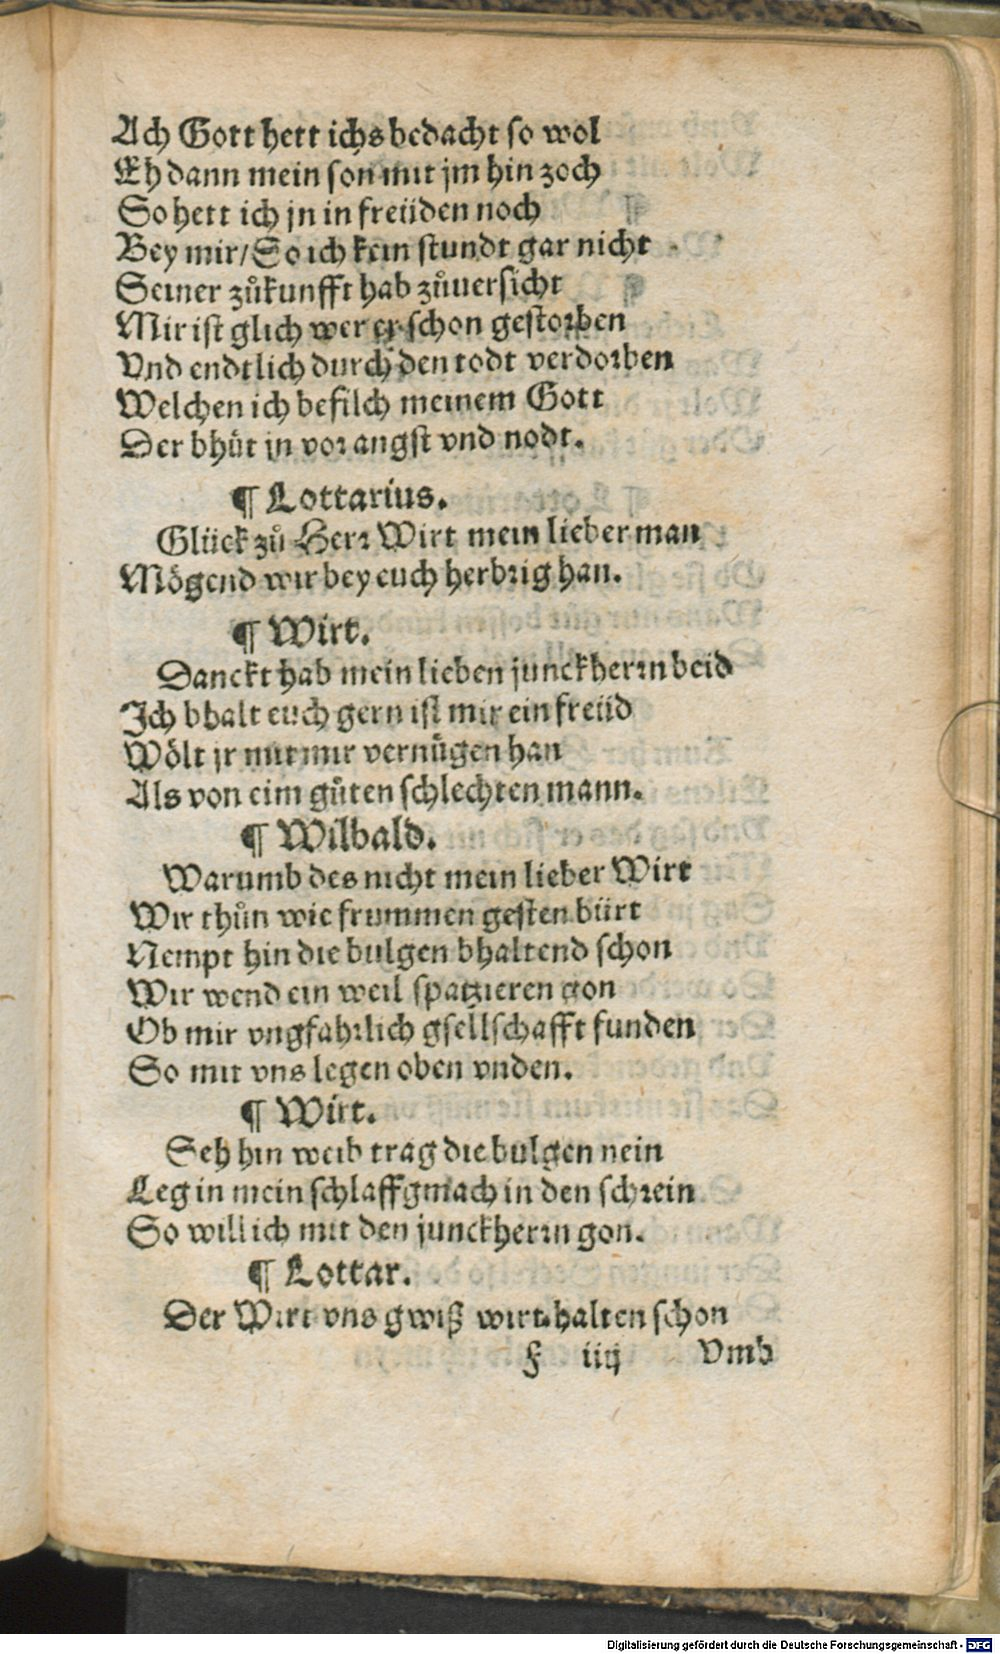 Ach Gott hett ichs bedacht so wol
Eh dann mein son mit jm hin zoch
So hett ich jn in freüden noch
Bey mir / So ich kein stundt gar nicht
Seiner zůkunfft hab zůuersicht
Mir ist glich wer er schon gestorben
Vnd endtlich durch den todt verdorben
Welchen ich befilch meinem Gott
Der bhüt jn vor angst vnd nodt.
¶ Lottarius.
Glück zů Herr Wirt mein lieber man
Mögend wir bey euch herbrig han.
¶ Wirt.
Danckt hab mein lieben junckherrn beid
Ich bhalt euch gern ist mir ein freüd
Wölt jr mit mir vernügen han
Als von eim gůten schlechten mann.
¶ Wilbald.
Warumb des nicht mein lieber Wirt
Wir thůn wie frummen gesten bürt
Nempt hin die bulgen bhaltend schon
Wir wend ein weil spatzieren gon
Ob mir vngfahrlich gsellschafft funden
So mit vns legen oben vnden.
¶ Wirt.
Seh hin weib trag die bulgen nein
Leg in mein schlaffgmach in den schrein
So will ich mit den junckherrn gon.
¶ Lottar.
Der Wirt vns gwiß wirt halten schon
F iiij Vmb
Digitalisierung gefördert durch die Deutsche Forschungsgemeinschaft - DFG